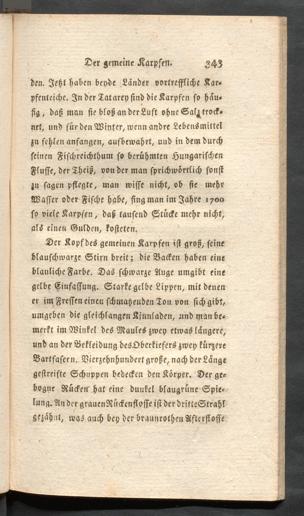 Der gemeine Karpfen. 343
den. Jetzt haben beyde Länder vortreffliche Kar-
pfenteiche. In der Tatarey sind die Karpfen so häu-
fig, daß man sie bloß an der Luft ohne Salz trock-
net, und für den Winter, wenn andre Lebensmittel
zu fehlen anfangen, aufbewahrt, und in dem durch
seinen Fischreichthum so berühmten Hungarischen
Flusse, der Theiß, von der man sprichwörtlich sonst
zu sagen pflegte, man wisse nicht, ob sie mehr
Wasser oder Fische habe, fing man im Jahre 1700
so viele Karpfen, daß tausend Stücke mehr nicht,
als einen Gulden, kosteten.
Der Kopf des gemeinen Karpfen ist groß, seine
blauschwarze Stirn breit; die Backen haben eine
blauliche Farbe. Das schwarze Auge umgibt eine
gelbe Einfassung. Starke gelbe Lippen, mit denen
er im Fressen einen schmatzenden Ton von sich gibt,
umgeben die gleichlangen Kinnladen, und man be-
merkt im Winkel des Maules zwey etwas längere,
und an der Bekleidung des Oberkiefers zwey kürzere
Bartfasern. Vierzehn hundert große, nach der Länge
gestreifte Schuppen bedecken den Körper. Der ge-
bogne Rücken hat eine dunkel blaugrüne Spie-
lung. An der grauen Rückenflosse ist der dritte Strahl
gezähnt, was auch bey der braunrothen Afterflosse